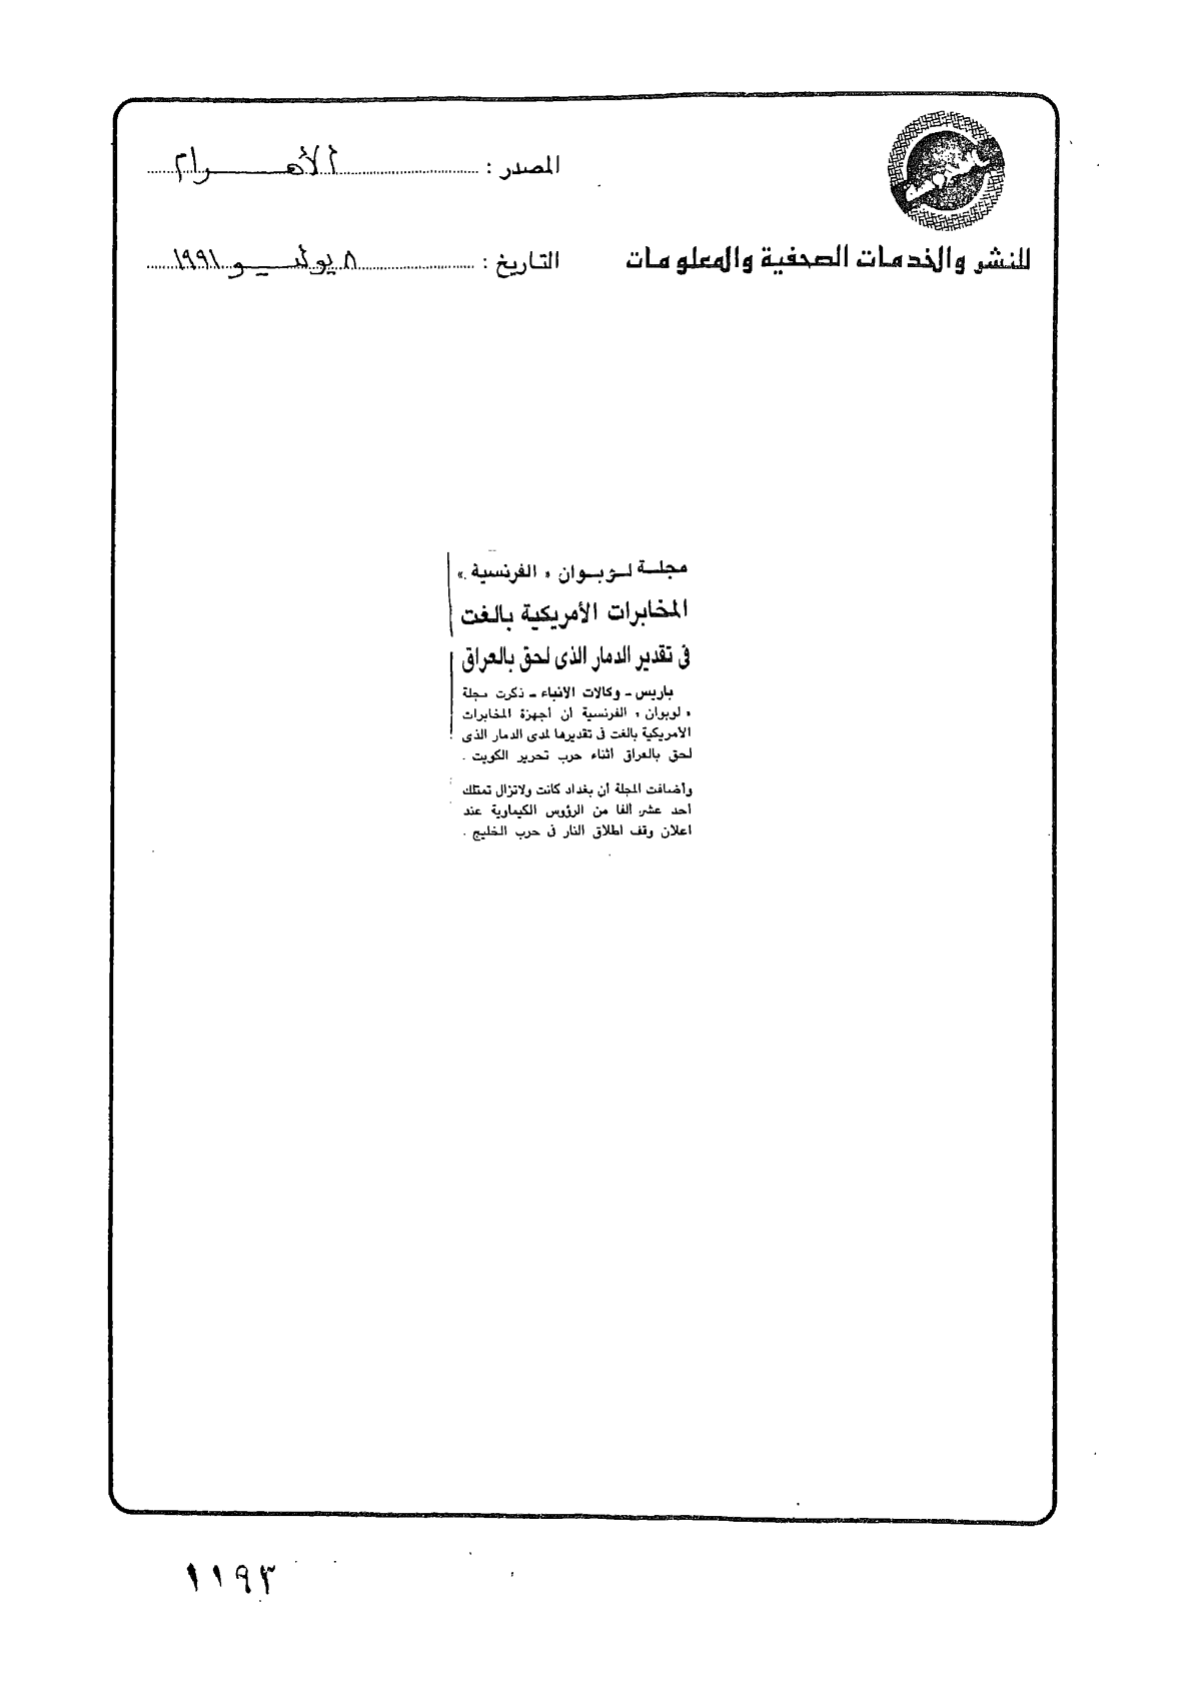 المصدر : الأهرام
للنشر والخدمات الصحفية والمعلومات
التاريخ : ٨ يوليو ١٩٩١
مجلة لوبوان « الفرنسية »
المخابرات الأمريكية بالغت
فى تقدير الدمار الذى لحق بالعراق
باريس ـ وكالات الانباء ـ ذكرت مجلة
« لوبوان » الفرنسية أن أجهزة المخابرات
الأمريكية بالغت فى تقديرها لمدى الدمار الذى
لحق بالعراق أثناء حرب تحرير الكويت .
وأضافت المجلة أن بغداد كانت ولاتزال تمتلك
أحد عشر ألفا من الرؤوس الكيماوية عند
اعلان وقف اطلاق النار فى حرب الخليج .
١١٩٣